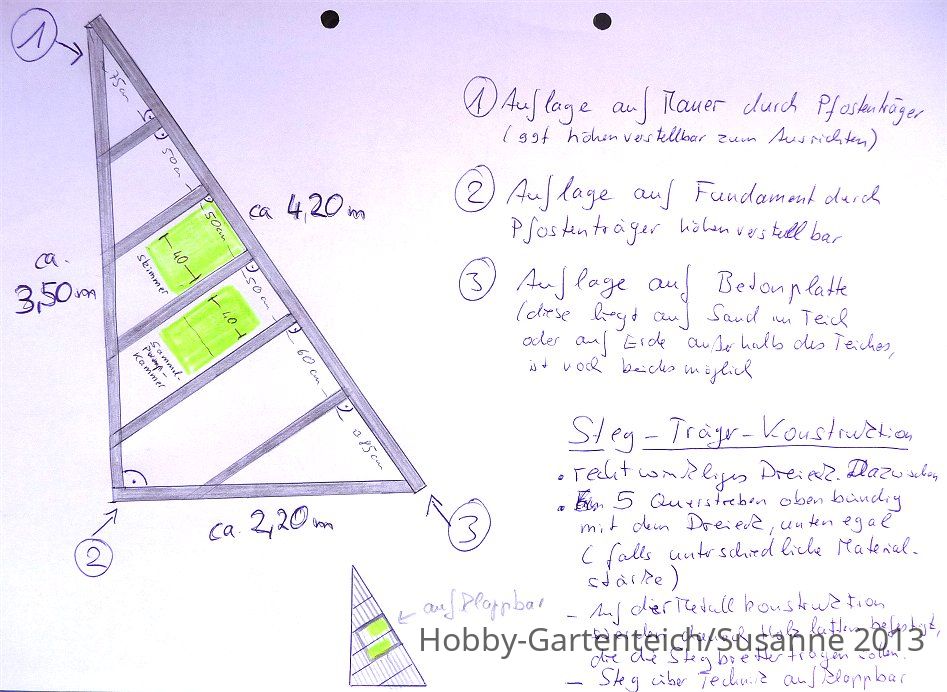 1
75cm
50cm
50cm
40
Skimmer
ca 4,20m
ca.
3,50m
50cm
40
Sammel-
Pump-
Kammer
60cm
85cm
ca. 2,20m
2
3
1 Auflage auf Mauer durch Pfostenträger
(ggf höhenverstellbar zum Ausrichten)
2 Auflage auf Fundament durch
Pfostenträger höhenverstellbar
3 Auflage auf Betonplatte
(diese liegt auf Sand im Teich
oder auf Erde außerhalb des Teiches,
ist noch beides möglich
Steg-Träger-Konstruktion
• rechtwinkliges Dreieck. Dazwischen
• 5 Querstreben oben bündig
mit dem Dreieck, unten egal
(falls unterschiedliche Material-
stärke)
- Auf der Metallkonstruktion
Holzlatten befestigt,
die die Stegbretter tragen sollen.
- Steg über Technik aufklappbar
aufklappbar
Hobby-Gartenteich/Susanne 2013